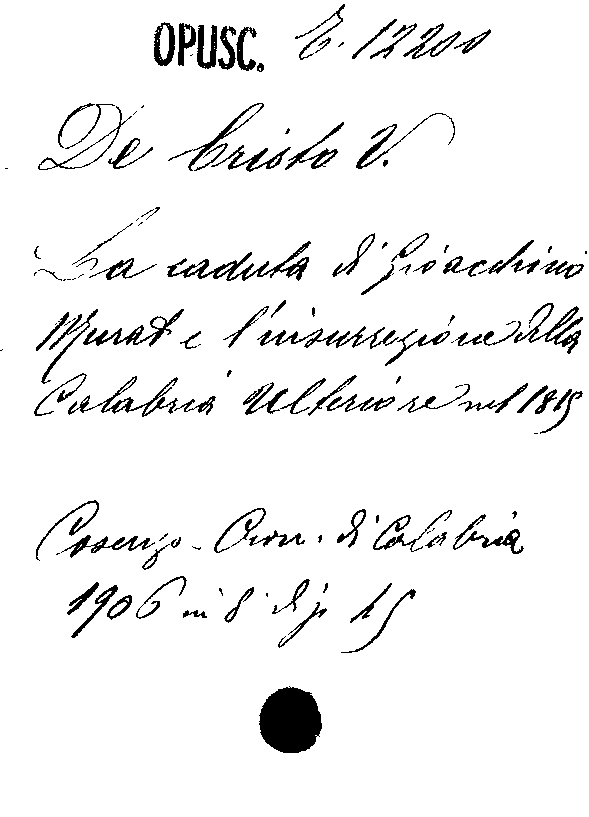 OPUSC. E. 12200
De Cristo V.
La caduta di Gioacchino
Murat e l'insurrezione della
Calabria Ulteriore nel 1815
Cosenza - Cron. di Calabria
1906 in 8° di p. 15